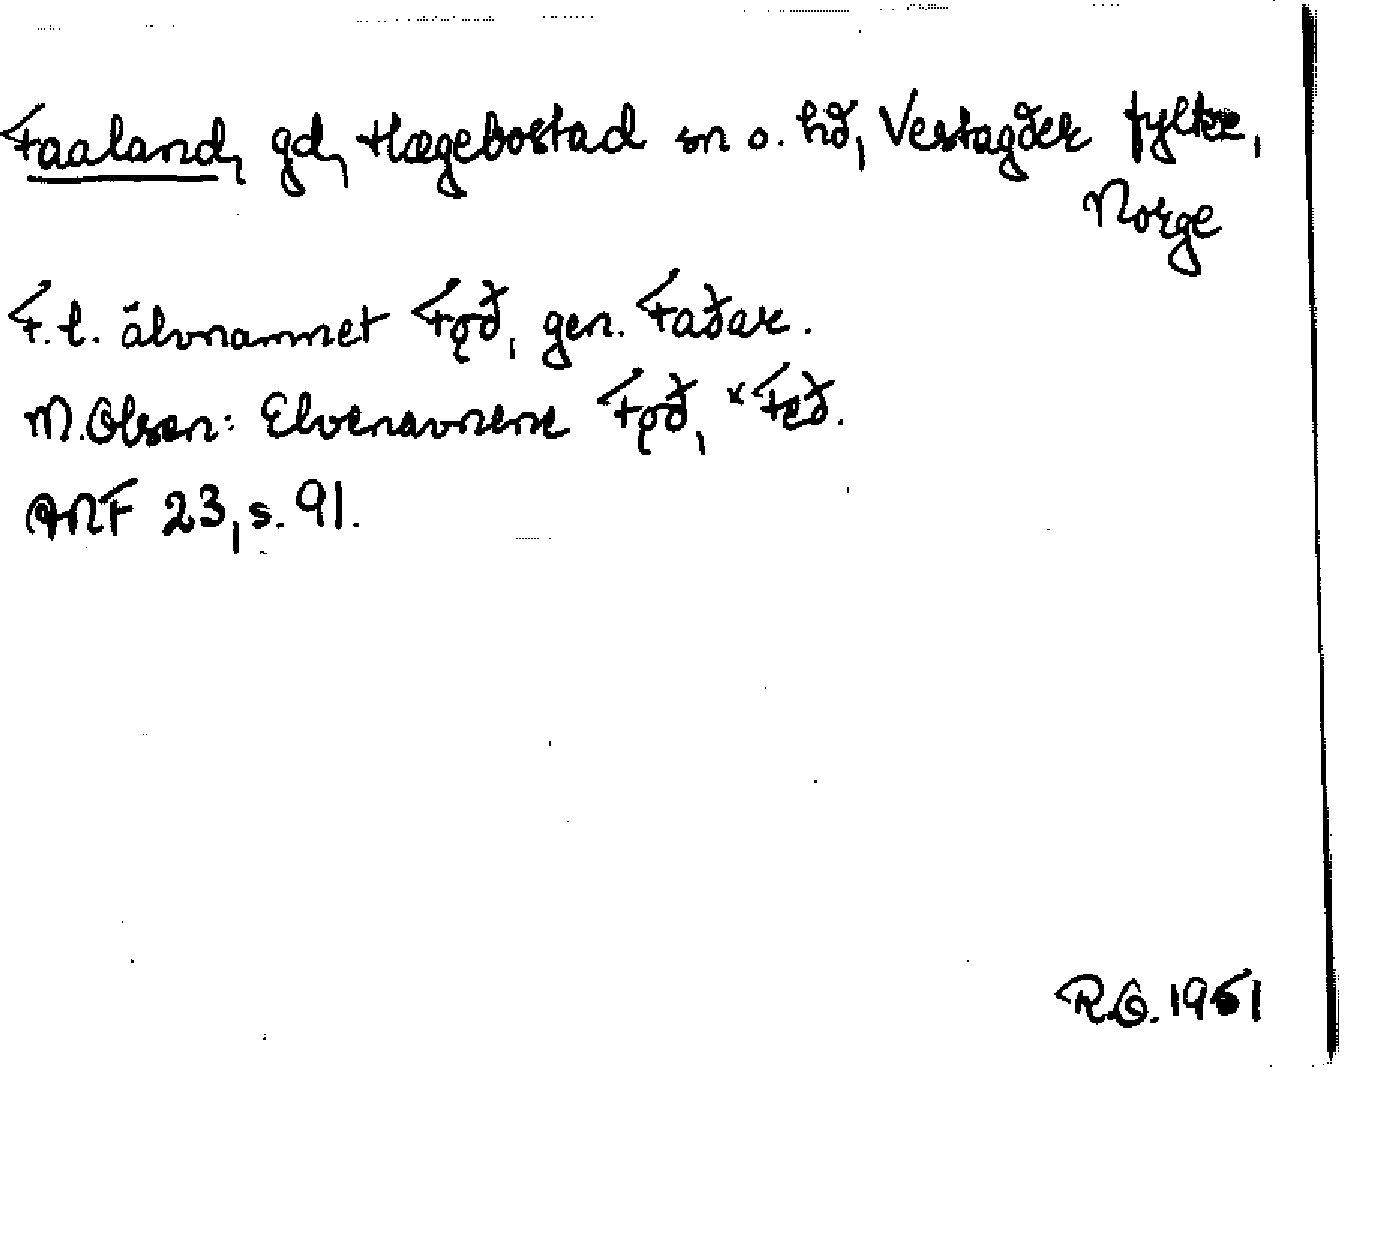 Faaland, gd, Hægebostad sn o. hd, Vestagder fylke,
Norge
F.t. älvnamnet Fǫð, gen. Faðar.
M. Olsen: Elvenavnene Fǫð, *Feð.
ANF 23, s. 91.
R.O. 1951